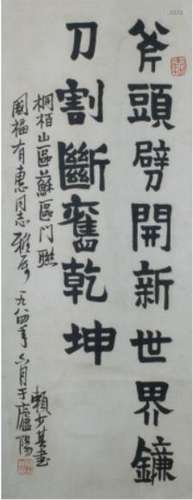 斧頭劈開新世界鐮
刀割斷舊乾坤
桐柏山區蘇區門聯
國福有惠同志雅屬 一九八五年六月于廬陽
賴少其書